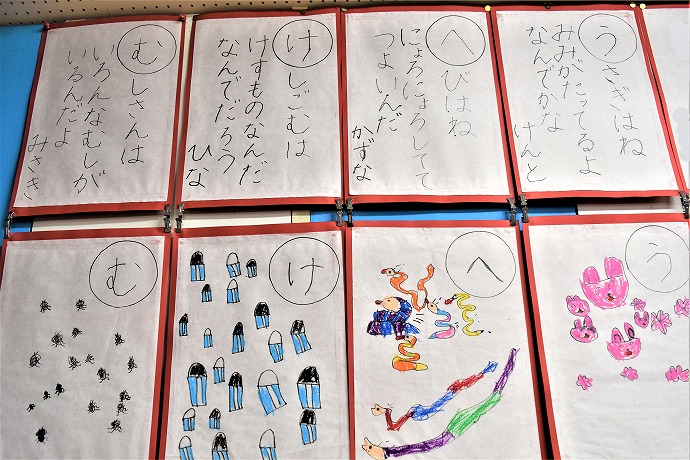 うさぎはね
みみがたってるよ
なんでかな
けんと
へびはね
にょろにょろしてて
つよいんだ
かずな
けしごむは
けすものなんだ
なんでだろう
ひな
むしさんは
いろんなむしが
いるんだよ
みさき
う
へ
け
む